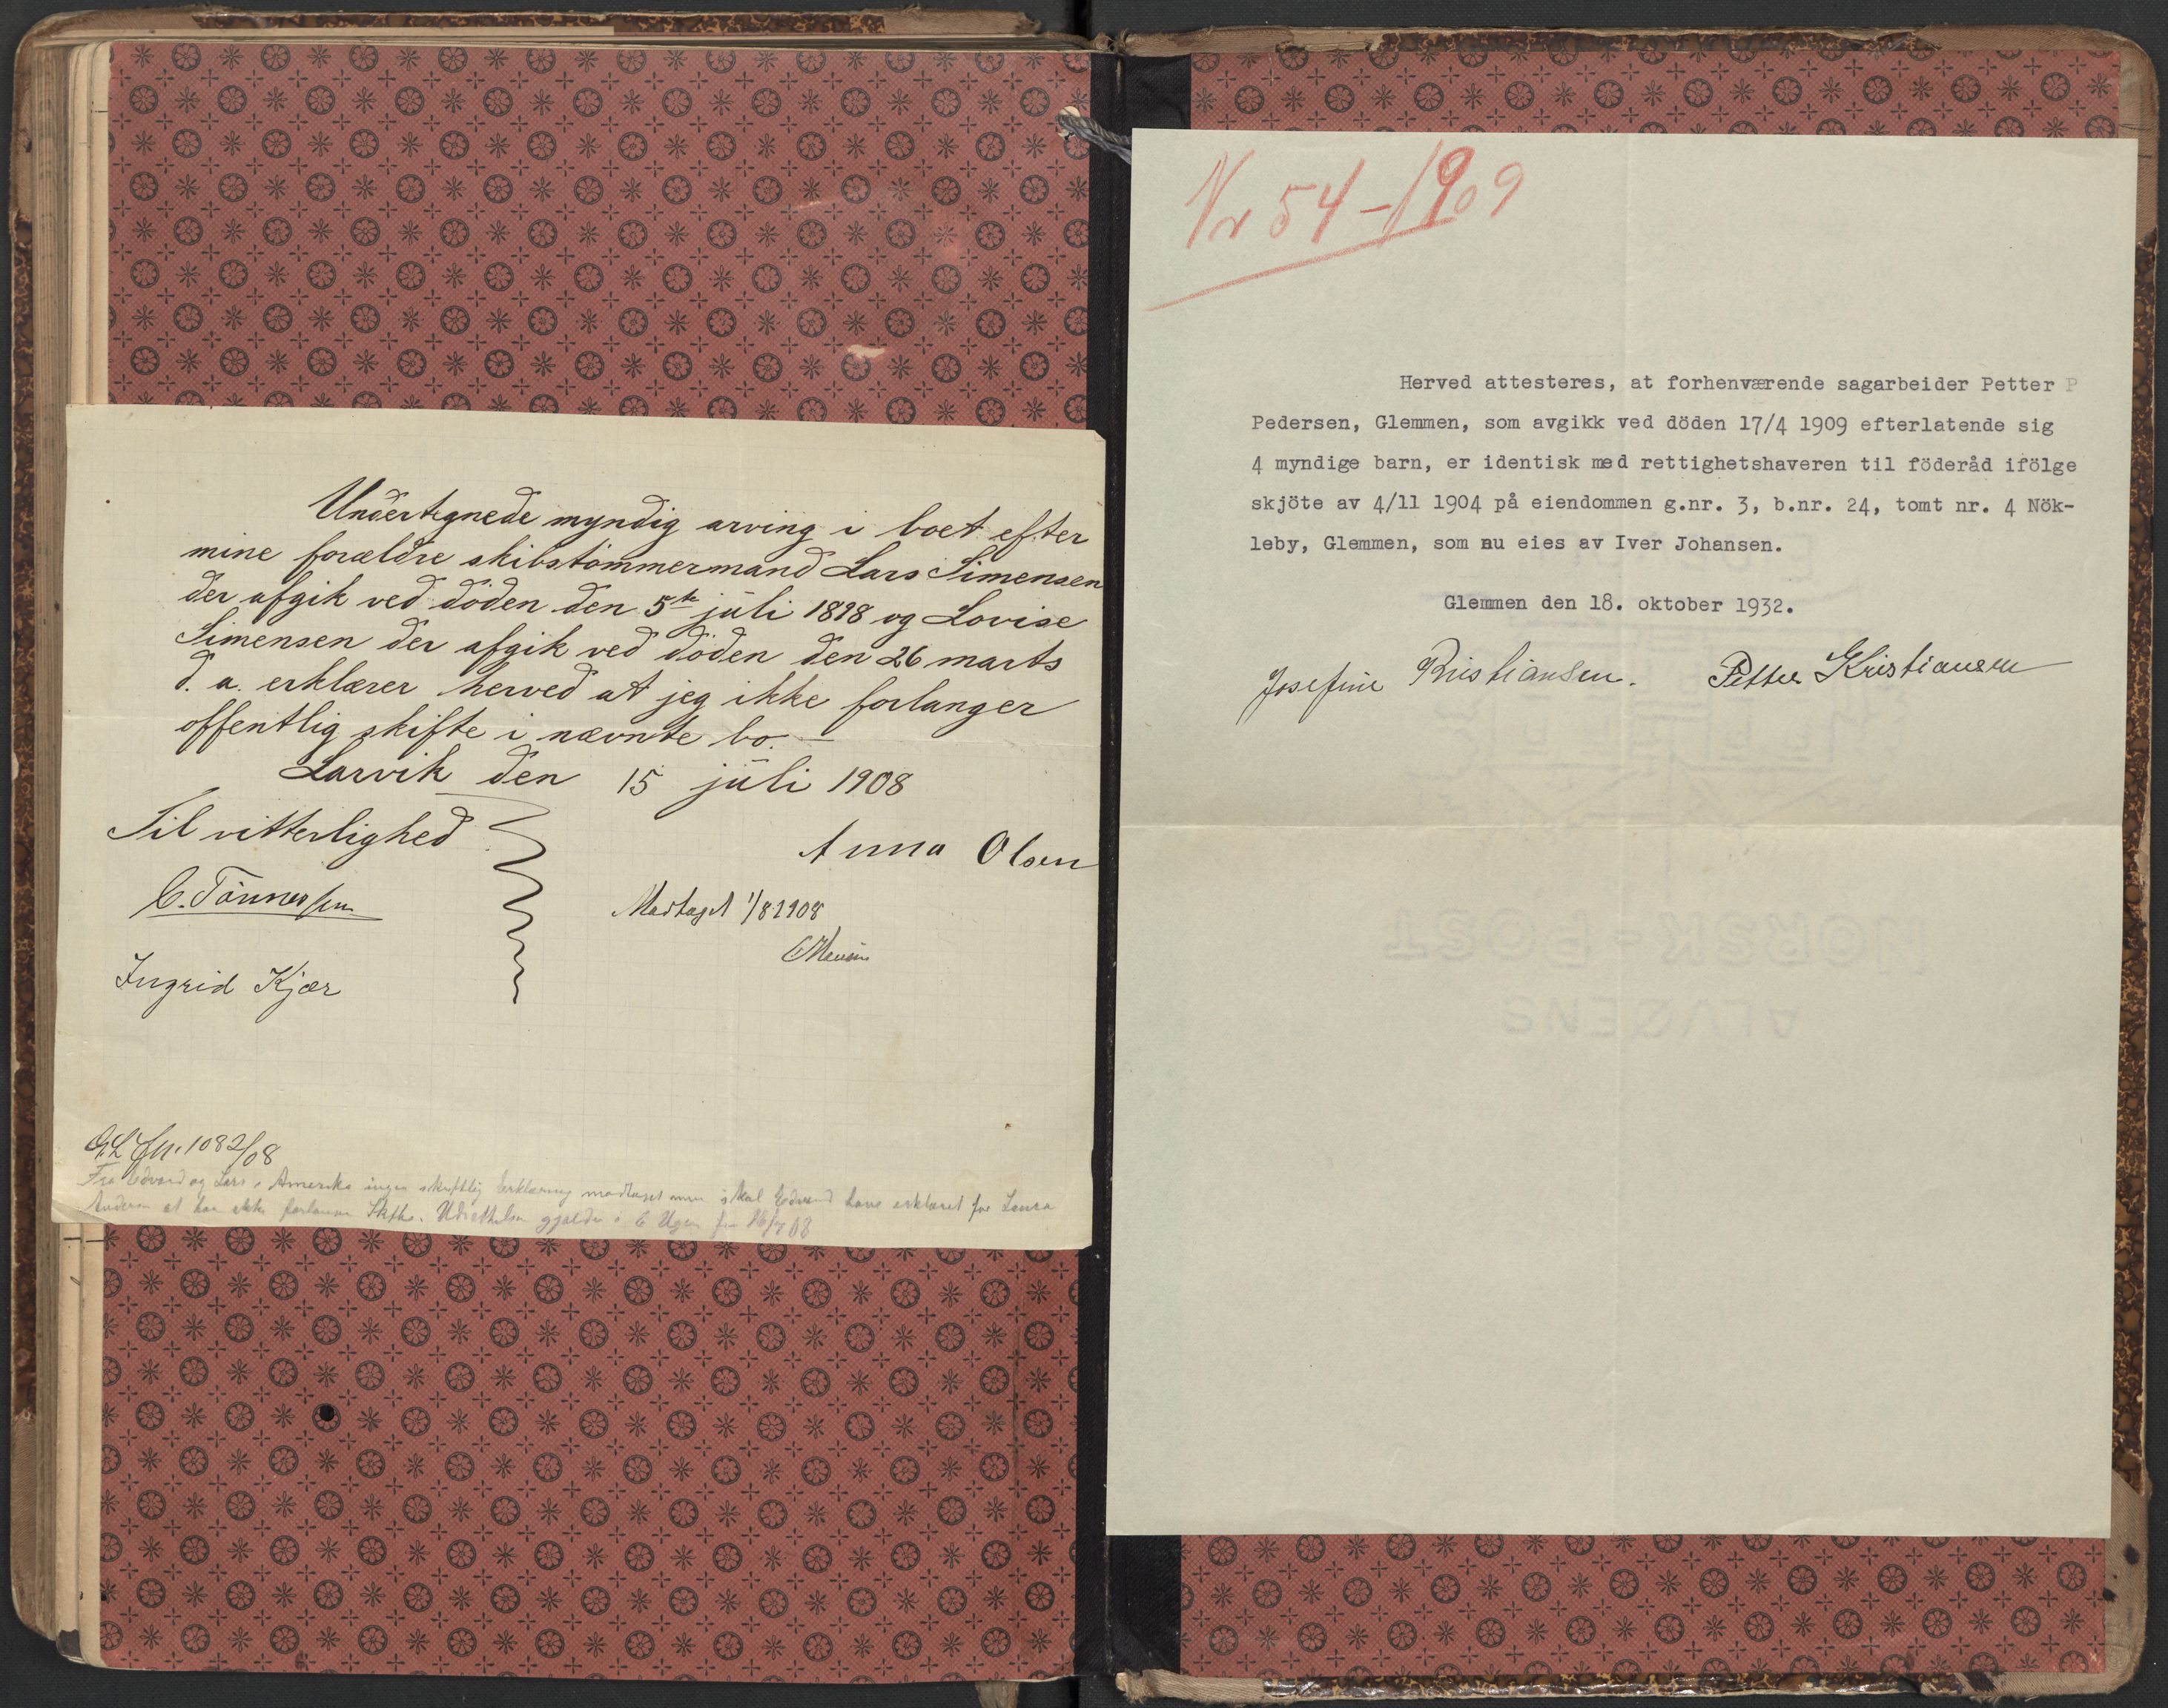 Undertegnede myndig arving i boet efter
mine forældre skibstömmermand Lars Simensen
der afgik ved döden den 5te juli 1898 og Lovise
Simensen der afgik ved döden den 26 marts
d. a. erklærer herved at jeg ikke forlanger
offentlig skifte i nævnte bo. —
Larvik den 15 juli 1908
Til vitterlighed
Anna Olsen
C. Tönnessen
Modtaget 1/8 1908
Ingrid Kjær
1082/08
Fra Edvard og Lars i Amerika ingen skriftlig Erklæring modtaget men skal Edvard have erklæret for Laura
Andersen at han ikke forlanger Skifte.
Nr 54 - 1909
Herved attesteres, at forhenværende sagarbeider Petter P
Pedersen, Glemmen, som avgikk ved döden 17/4 1909 efterlatende sig
4 myndige barn, er identisk med rettighetshaveren til föderåd ifölge
skjöte av 4/11 1904 på eiendommen g.nr. 3, b.nr. 24, tomt nr. 4 Nök-
leby, Glemmen, som nu eies av Iver Johansen.
Glemmen den 18. oktober 1932.
Josefine Kristiansen. Petter Kristiansen
NORSK-POST
ALVØENS